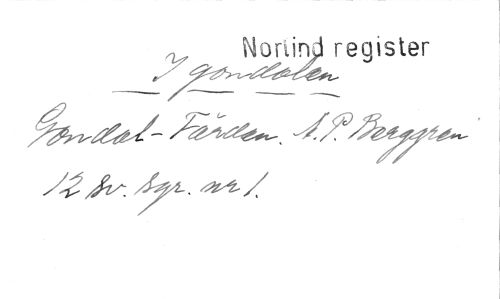 Norlind register
I gondolen
Gondol-Färden. A.P. Berggren
12 sv. sgr. nr 1.